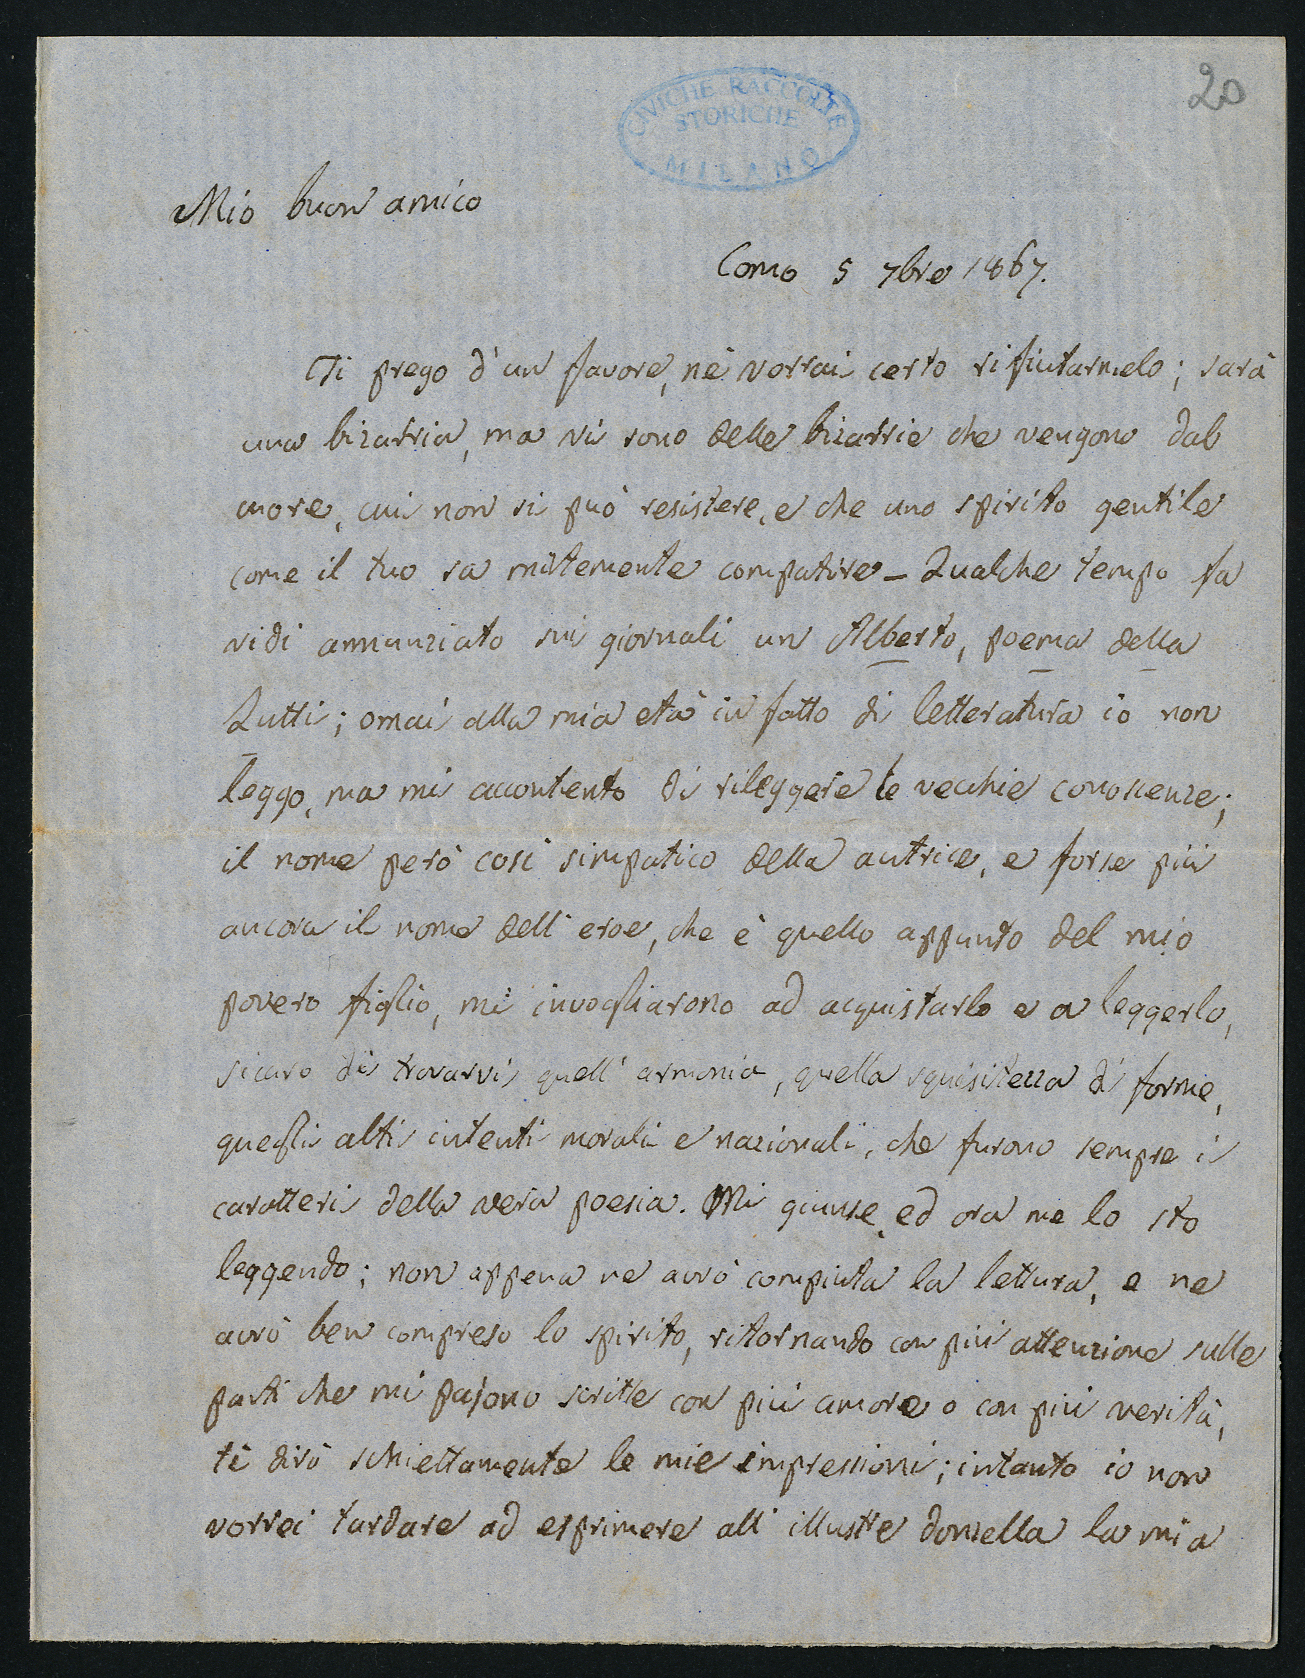 20
CIVICHE RACCOLTE
STORICHE
MILANO
Mio buon amico
Como 5 7bre 1867.
Ti prego d'un favore, nè vorrai certo rifiutarmelo; sarà
una bizarria, ma vi sono delle bizarrie che vengono dal
cuore, cui non si può resistere, e che uno spirito gentile
come il tuo sa mitemente compatire – Qualche tempo fa
vidi annunziato sui giornali un Alberto, poema della
Zutti; omai alla mia età in fatto di letteratura io non
leggo, ma mi accontento di rileggere le vecchie conoscenze;
il nome però così simpatico della autrice, e forse più
ancora il nome dell'eroe, che è quello appunto del mio
povero figlio, mi invogliarono ad acquistarlo e a leggerlo,
sicuro di trovarvi quell'armonia, quella squisitezza di forme,
quegli alti intenti morali e nazionali, che furono sempre i
caratteri della vera poesia. Mi giunse, ed ora me lo sto
leggendo; non appena ne avrò compiuta la lettura, e ne
avrò ben compreso lo spirito, ritornando con più attenzione sulle
parti che mi pajono scritte con più amore o con più verità,
ti dirò schiettamente le mie impressioni; intanto io non
vorrei tardare ad esprimere all'illustre donzella la mia